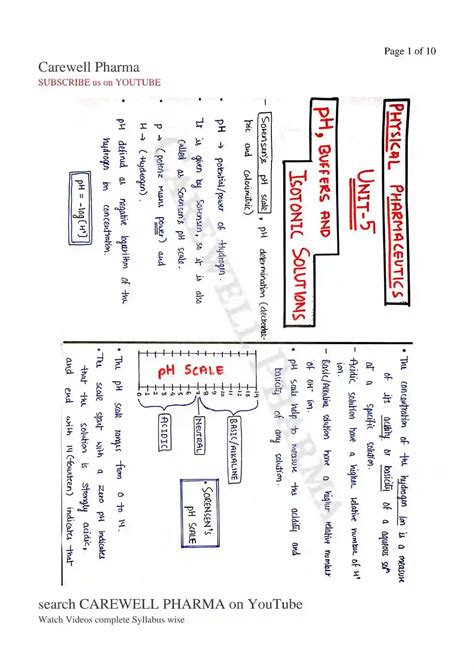 Page 1 of 10
Carewell Pharma
SUBSCRIBE us on YOUTUBE
PHYSICAL PHARMACEUTICS
UNIT-5
pH, BUFFERS AND
ISOTONIC SOLUTIONS
- Sorensen's pH scale, pH determination (electrometric and colorimetric)
• pH → potential/power of Hydrogen.
• It is given by Sorensen, so it is also
called as Sorensen's pH scale.
p → (potenz means Power) and
H → (Hydrogen)
• pH defined as negative logarithm of the
hydrogen ion concentration.
pH = -log[H+]
• The concentration of the hydrogen ion is a measure
of its acidity or basicity of a aqueous solⁿ
at a specific solution.
- Acidic solution have a higher relative number of H+
ion.
- Basic/Alkaline solution have a higher relative number
of OH- ion.
• pH scale help to measure the acidity and
basicity of any solution.
pH SCALE
0 1 2 3 4 5 6 7 8 9 10 11 12 13 14
ACIDIC
NEUTRAL
BASIC/ALKALINE
• SORENSEN'S
pH SCALE
• The pH scale ranges from 0 to 14.
• The scale start with a zero pH indicates
that the solution is strongly acidic,
and end with 14 (fourteen) indicates that
CAREWELL PHARMA
search CAREWELL PHARMA on YouTube
Watch Videos complete Syllabus wise